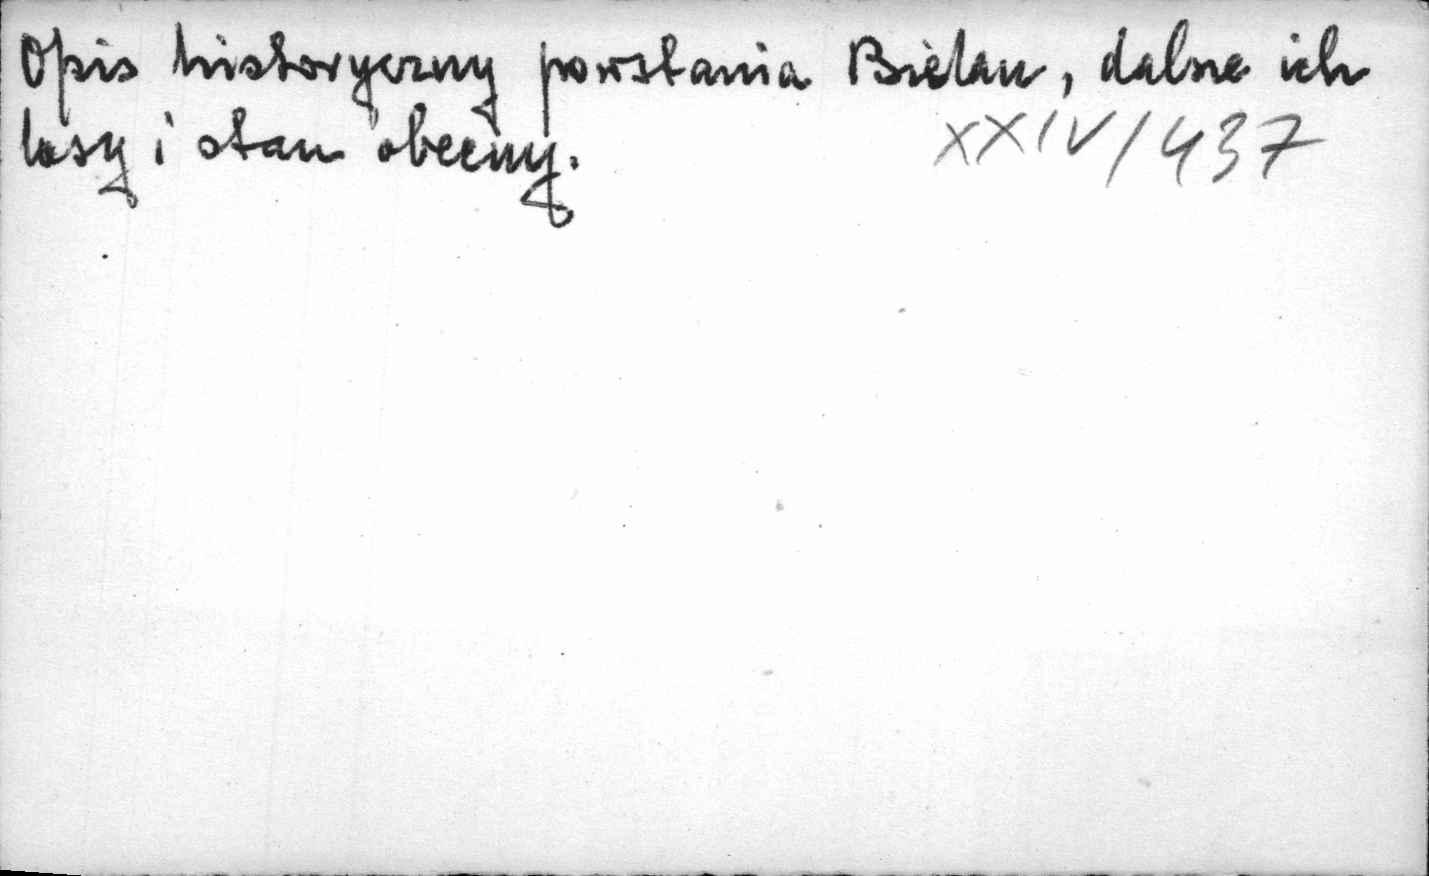 Opis historyczny powstania Bielan, dalsze ich
losy i stan obecny.
XXIV/437